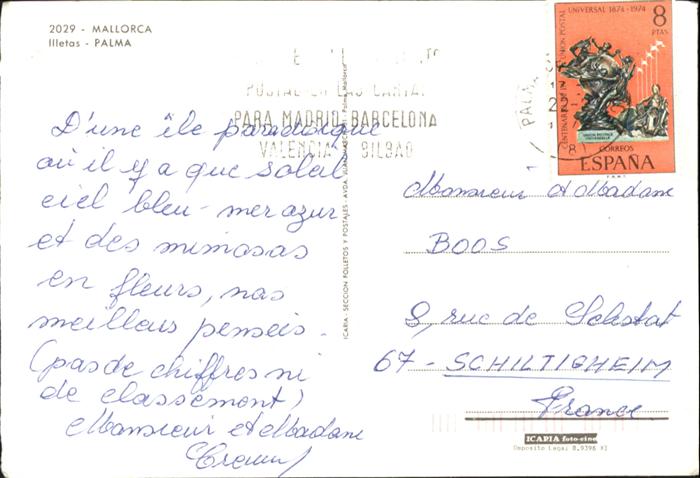 2029 - MALLORCA
Illetas - PALMA
POSTAL EN LAS CARTAS
PARA MADRID-BARCELONA
VALENCIA BILBAO
PALMA
CENTENARIO DE LA UNION POSTAL UNIVERSAL 1874-1974
8
PTAS
CORREOS
ESPAÑA
D'une île paradisiaque
où il y a que soleil
ciel bleu - mer azur
et des mimosas
en fleurs, nos
meilleurs pensées.
(pas de chiffres ni
de classement)
Monsieur et Madame
Monsieur et Madame
BOOS
8, rue de Sélestat
67 - SCHILTIGHEIM
France
ICARIA - SECCION FOLLETOS Y POSTALES - AVDA.
Palma Mallorca
ICARIA foto-cine
Deposito Legal B.9396 XI